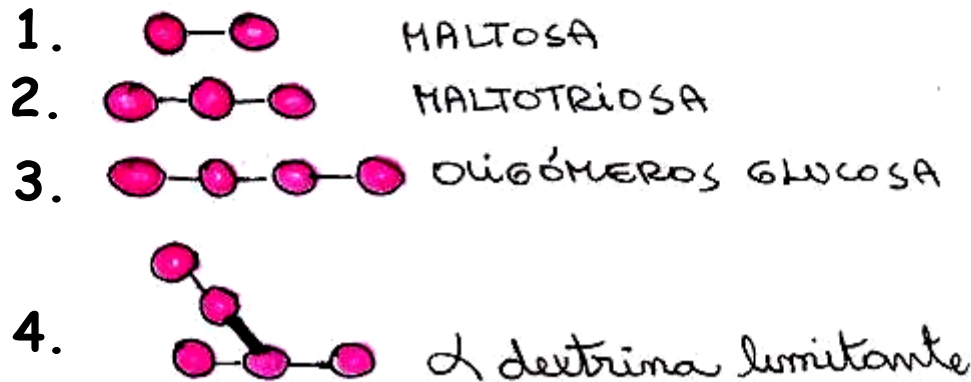 1. MALTOSA
2. MALTOTRIOSA
3. OLIGÓMEROS GLUCOSA
4. α dextrina limitante